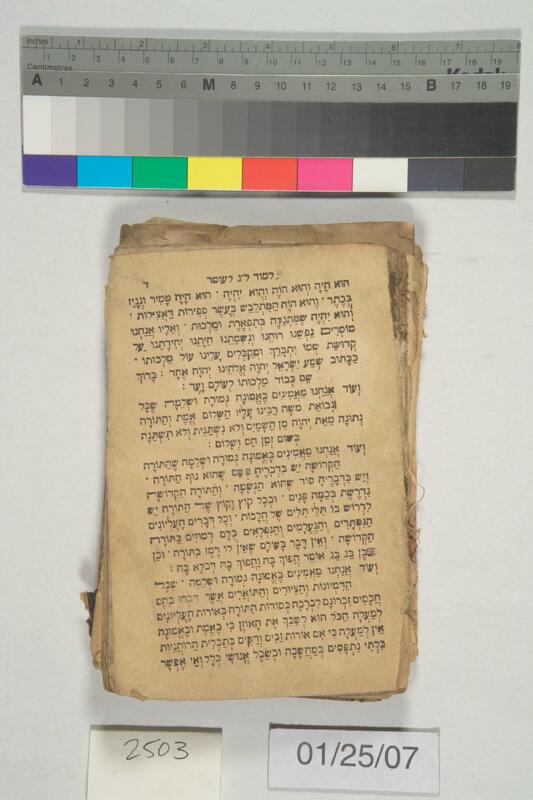 inches 1 2 3 4 5 6 7 8
1 2 3 4 5 6 7 8 9 10 11 12 13 14 15 16 17 18 19
Centimetres Kodak
A 1 2 3 4 5 6 M 8 9 10 11 12 13 14 15 B 17 18 19
למוד ל״ג לעומר
הוּא הָיָה וְהוּא הֹוֶה וְהוּא יִהְיֶה · הוּא הָיָה טָמִיר וְגָנִיז
בְּכֶתֶר · וְהוּא הֹוֶה הַמִּתְלַבֵּשׁ בְּעֶשֶׂר סְפִירוֹת דַּאֲצִילוּת ·
וְהוּא יִהְיֶה שֶׁמִּתְגַּלֶּה בְּתִפְאֶרֶת וּמַלְכוּת · וְאֵלָיו אֲנַחְנוּ
מוֹסְרִים נַפְשֵׁנוּ רוּחֵנוּ וְנִשְׁמָתֵנוּ חַיָּתֵנוּ יְחִידָתֵנוּ עַל
קְדוּשַּׁת שְׁמוֹ יִתְבָּרַךְ וּמְקַבְּלִים עָלֵינוּ עוֹל מַלְכוּתוֹ ·
כַּכָּתוּב שְׁמַע יִשְׂרָאֵל יְהֹוָה אֱלֹהֵינוּ יְהֹוָה אֶחָד : בָּרוּךְ
שֵׁם כְּבוֹד מַלְכוּתוֹ לְעוֹלָם וָעֶד :
וְעוֹד אֲנַחְנוּ מַאֲמִינִים בֶּאֱמוּנָה גְמוּרָה וּשְׁלֵמָה שֶׁכָּל
נְבוּאַת מֹשֶׁה רַבֵּינוּ עָלָיו הַשָּׁלוֹם אֱמֶת וְהַתּוֹרָה
נְתוּנָה מֵאֵת יְהֹוָה מִן הַשָּׁמַיִם וְלֹא נִשְׁתַּנֵּית וְלֹא תִשְׁתַּנֶּה
בְּשׁוּם זְמַן חַס וְשָׁלוֹם :
וְעוֹד אֲנַחְנוּ מַאֲמִינִים בֶּאֱמוּנָה גְמוּרָה וּשְׁלֵמָה שֶׁהַתּוֹרָה
הַקְּדוֹשָׁה יֵשׁ בִּדְבָרֶיהָ פְּשָׁט שֶׁהוּא גוּף הַתּוֹרָה ·
וְיֵשׁ בִּדְבָרֶיהָ סוֹד שֶׁהוּא הַנְּשָׁמָה · וְהַתּוֹרָה הַקְּדוֹשָׁה
נִדְרֶשֶׁת בְּכַמָּה פָּנִים · וּבְכָל קוֹץ וָקוֹץ שֶׁל הַתּוֹרָה יֵשׁ
לִדְרוֹשׁ בּוֹ תִּלֵּי תִּלִּים שֶׁל הֲלָכוֹת · וְכָל דְּבָרִים הָעֶלְיוֹנִים
הַנִּסְתָּרִים וְהַנֶּעֱלָמִים וְהַנִּפְלָאִים כֻּלָּם רְמוּזִים בַּתּוֹרָה
הַקְּדוֹשָׁה · וְאֵין דָּבָר בָּעוֹלָם שֶׁאֵין לוֹ רֶמֶז בַּתּוֹרָה · וְכֵן
בֶּן בַּג בַּג אוֹמֵר הֲפוֹךְ בָּהּ וַהֲפוֹךְ בָּהּ דְּכֹלָּא בָּהּ :
וְעוֹד אֲנַחְנוּ מַאֲמִינִים בֶּאֱמוּנָה גְמוּרָה וּשְׁלֵמָה · שֶׁכָּל
הַדִּמְיוֹנוֹת וְהַצִּיּוּרִים וְהַתּוֹאֲרִים אֲשֶׁר דִּבְּרוּ בָּהֶם
חֲכָמִים זִכְרוֹנָם לִבְרָכָה בְּסוֹדוֹת הַתּוֹרָה בְּאוֹרוֹת הָעֶלְיוֹנִים
לְמַעְלָה הַכֹּל הוּא לְשַׁבֵּךְ אֶת הָאוֹזֶן כִּי בֶּאֱמֶת וּבֶאֱמוּנָה
אֵין לְמַעְלָה כִּי אִם אוֹרוֹת זַכִּים וְדַקִּים בְּתַכְלִית הָרוּחָנִיּוּת
בִּלְתִּי נִתְפָּסִים בְּמַחֲשָׁבָה וּבְשֵׂכֶל אֱנוֹשִׁי כְּלָל וְאִי אֶפְשָׁר
2503
01/25/07